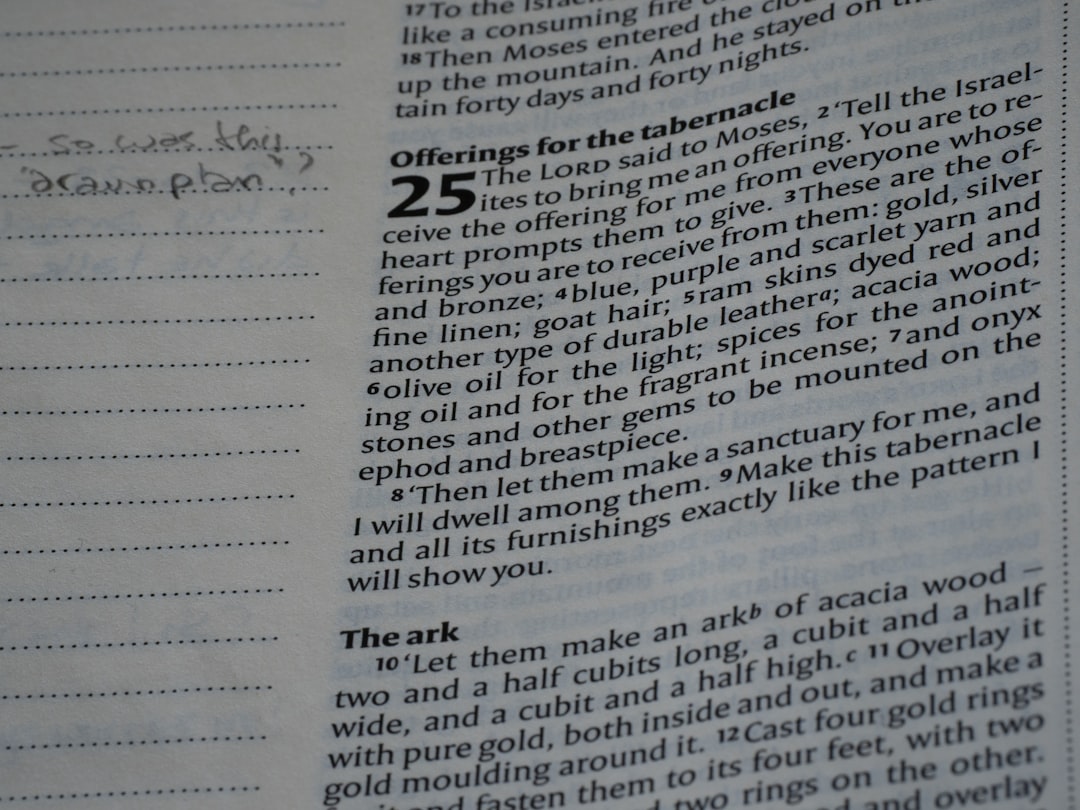 - so was this
'drawn plan'?
17 To the Israe
like a consuming fire o
18 Then Moses entered the clo
up the mountain. And he stayed on th
tain forty days and forty nights.
Offerings for the tabernacle
25 The LORD said to Moses, 2 ‘Tell the Israel-
ites to bring me an offering. You are to re-
ceive the offering for me from everyone whose
heart prompts them to give. 3 These are the of-
ferings you are to receive from them: gold, silver
and bronze; 4 blue, purple and scarlet yarn and
fine linen; goat hair; 5 ram skins dyed red and
another type of durable leather a; acacia wood;
6 olive oil for the light; spices for the anoint-
ing oil and for the fragrant incense; 7 and onyx
stones and other gems to be mounted on the
ephod and breastpiece.
8 ‘Then let them make a sanctuary for me, and
I will dwell among them. 9 Make this tabernacle
and all its furnishings exactly like the pattern I
will show you.
The ark
10 ‘Let them make an ark b of acacia wood –
two and a half cubits long, a cubit and a half
wide, and a cubit and a half high. c 11 Overlay it
with pure gold, both inside and out, and make a
gold moulding around it. 12 Cast four gold rings
and fasten them to its four feet, with two
two rings on the other.
and overlay